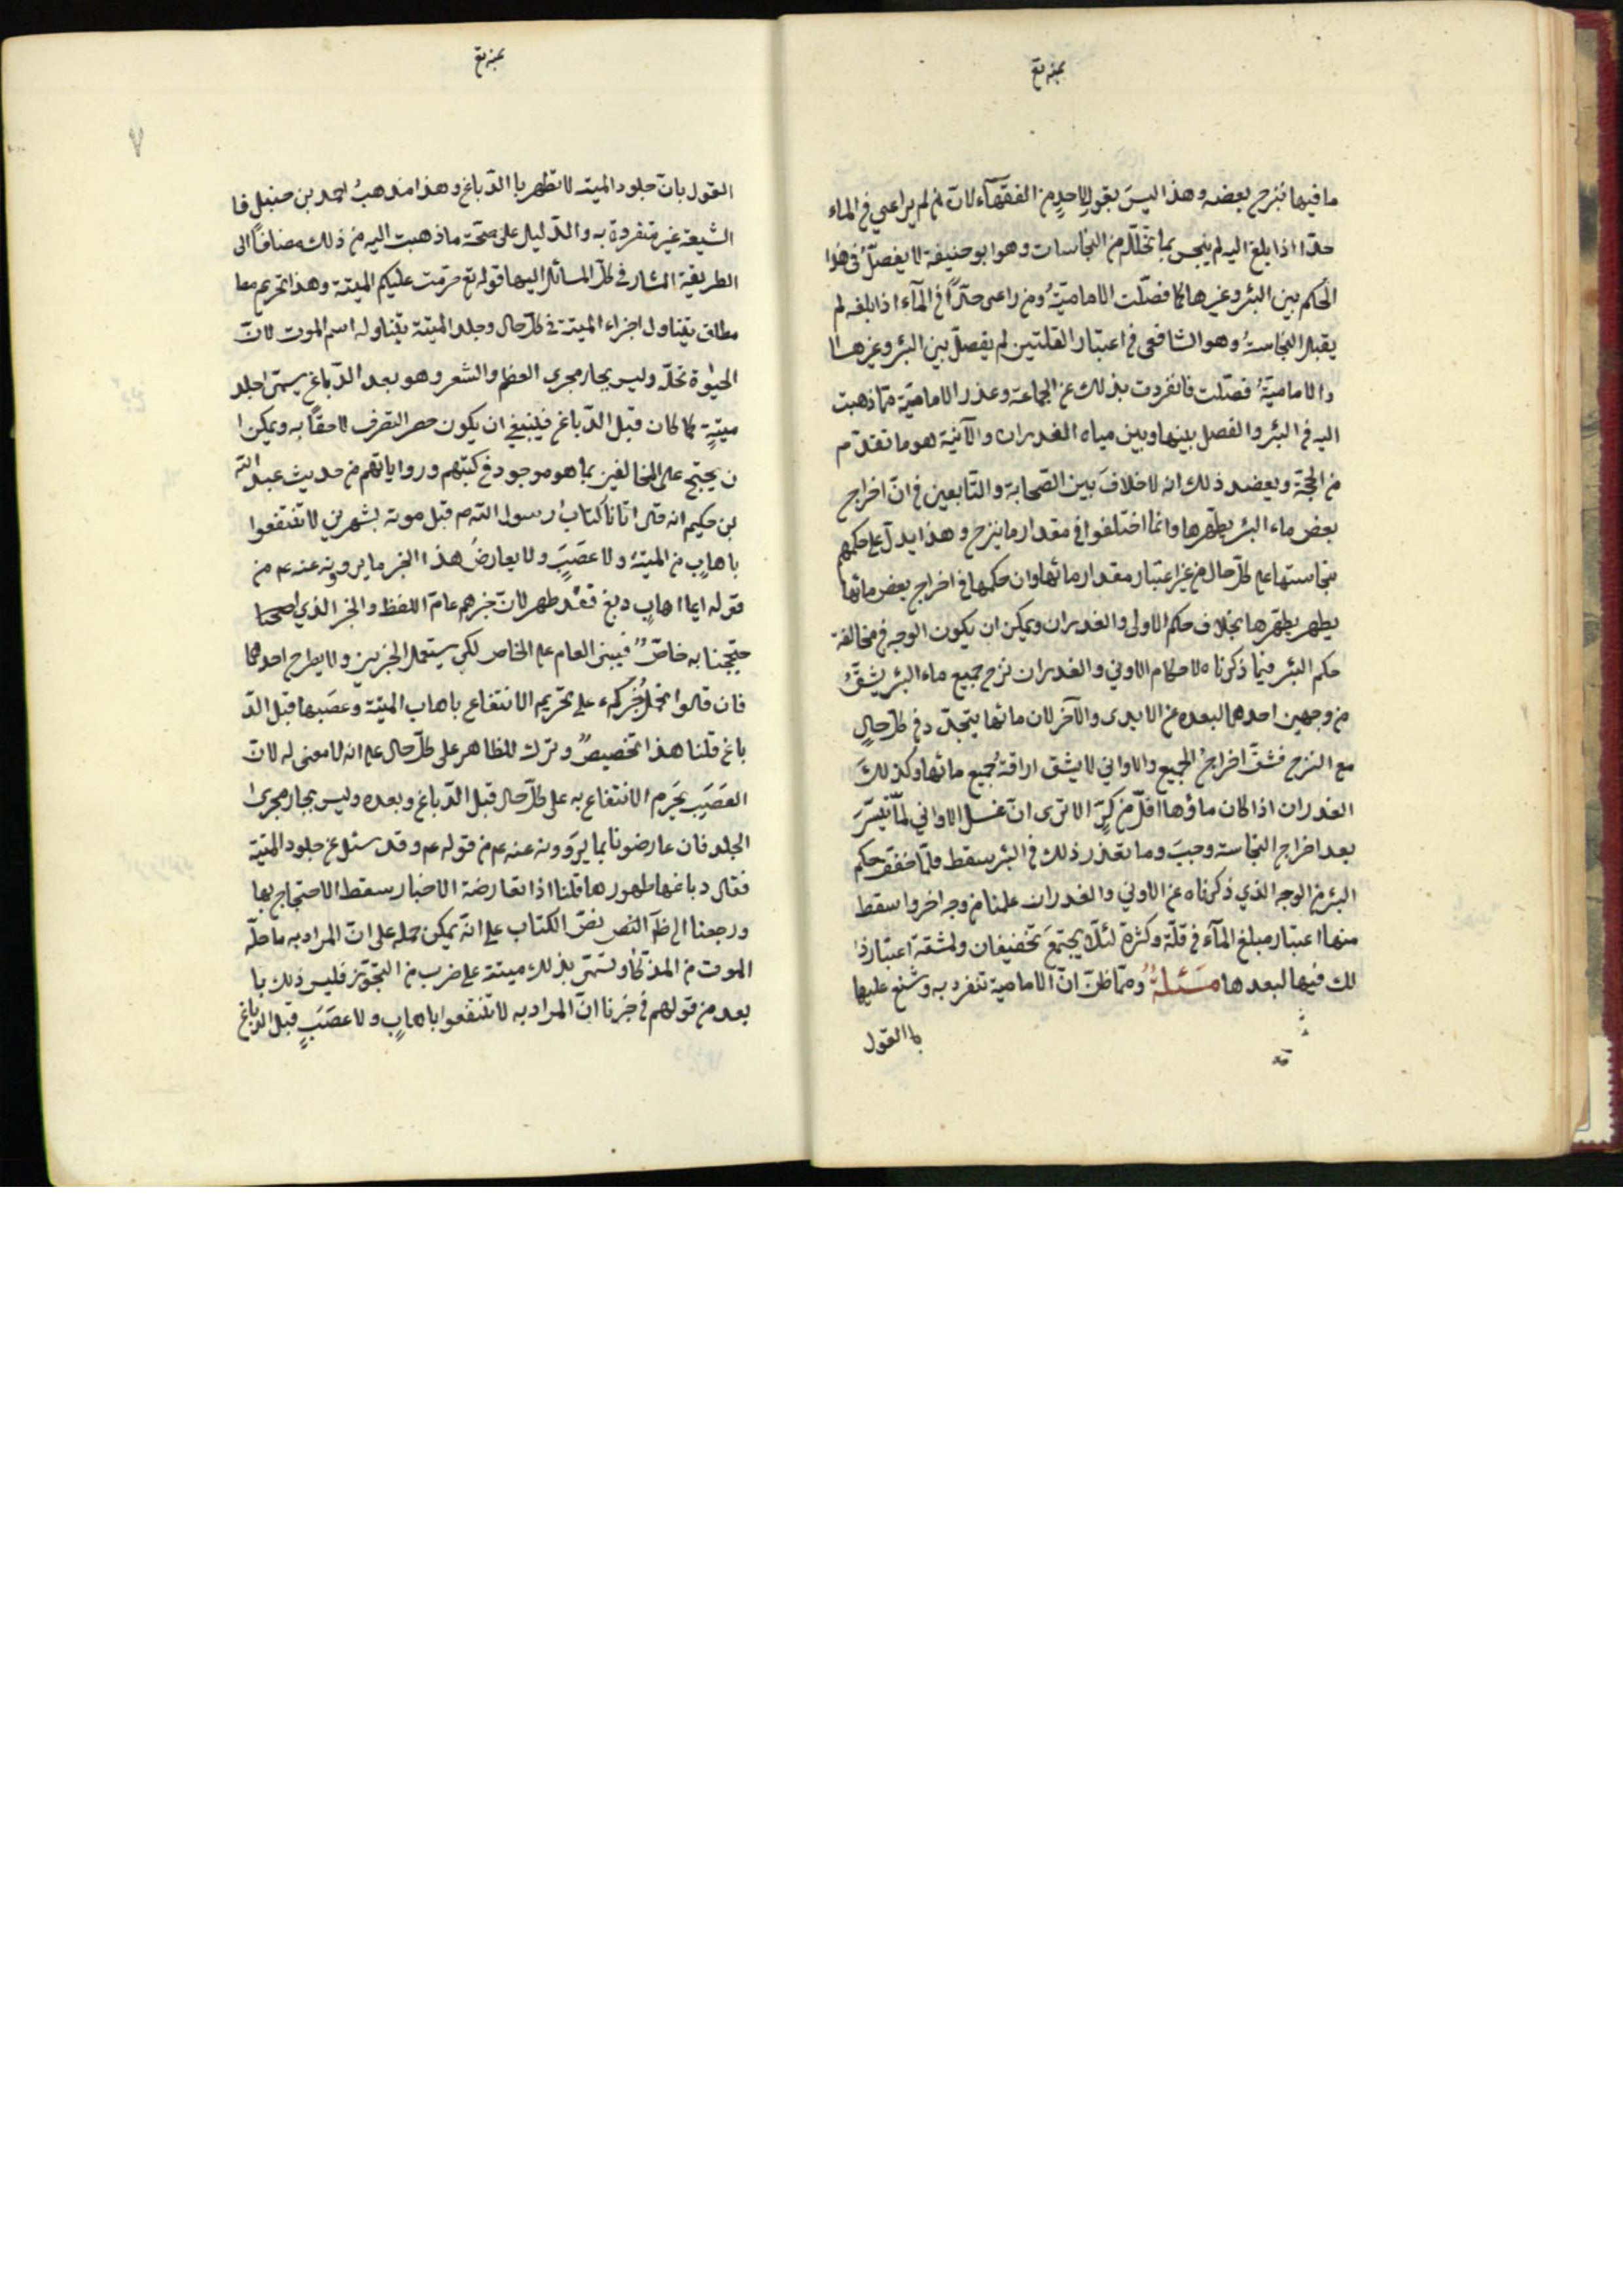 بمنه تع
ما فيها فنزح بعضه وهذا ليس بقول لاحد من الفقهآء لانّ من لم يراعي في الماء
حدّا اذا بلغ اليه لم ينجس بما تخلّله من النجاسات وهو ابو حنيفة لا يفصلّ في هذا
الحكم بين البئر وغيرها كما فصّلت الاماميّة ومن راعى حدّاً في المآء اذا بلغه لم
يقبل النجاسة وهو الشافعي في اعتبار القلتين لم يفصلّ بين البئر وغيرها
والاماميّة فصّلت فانفردت بذلك عن الجماعة وعذر الاماميّة ممّا ذهبت
اليه في البئر والفصل بينها وبين مياه الغدران والآنية هو ما تقدّم
من الحجّة ويعضد ذلك انه لا خلاف بين الصّحابة والتّابعين في انّ اخراج
بعض ماء البئر يطهّرها وانما اختلفوا في مقدار ما ينزح وهذا يدلّ على حكمهم
بنجاستها على كلّ حال من غير اعتبار مقدار مائها وان حكمها في اخراج بعض مائها
يطهر يطهّرها بخلاف حكم الاولى والغدران ويمكن ان يكون الوجه في مخالفة
حكم البئر فيما ذكرناه لاحكام الاوني والغدران نزح جميع ماء البئر يشقّ
من وجهين احدهما لبعده عن الايدى والآخر لان مائها يتجدّد في كلّ حالٍ
مع النزح فشقّ اخراج الجميع والاواني لا يشق اراقة جميع مائها وكذلك
الغدران اذا كان ماؤها اقلّ من كرٍّ الا ترى انّ غسل الاواني لمّا تيسّرَ
بعد اخراج النجاسة وجبَ وما تعذر ذلك في البئر سقط فلمّا خفف حكم
البئر من الوجه الذي ذكرناه عن الاوني والغدران علمنا من وجه اخر واسقط
منها اعتبار مبلغ المآء في قلّة وكثرة لئلّا يجتمعَ تخفيفان ولمشقة اعتبار ذا
لك فيها لبعدها مسئلة وممّا ظنّ انّ الامامية تنفرد به وشنع عليها
با القول
بمنه تع
٧
القول بانّ جلود الميته لا تطهر با الدّباغ وهذا مذهبُ احمد بن حنبل فا
الشيعة غير متفردة به والدّليل على صحّة ما ذهبت اليه من ذلك مضافاً الى
الطريقة المشار في كلّ المسائل اليها قوله تع حرّمت عليكم الميتة وهذا تحريم معا
مطلق يتناول اجزاء الميتة في كلّ حال وجلد الميتة يتناوله اسم الموت لانّ
الحيوٰة تحلّه وليس بجار مجرى العظم والشعر وهو بعد الدّباغ يسمّى اجلد
ميتةٍ كما كان قبل الدّباغ فينبغي ان يكون حصر التصرف لاحقاً به ويمكن ا
ن يحتج على المخالفين بما هو موجود في كتبهم ورواياتهم من حديث عبد الله
بن حكيم انه قال اتانا كتابُ رسول اللّه ص قبل موته بشهرين لا تنتفعوا
باهابٍ من الميتة ولا عصَبَ ولا يعارضُ هذا الخبر ما يروونه عنه ع من
قوله ايما اهابٍ دبغ فقد طهر لانّ خبرهم عامّ اللفظ والخبر الذي احتجنا
حتججنا به خاصّ فيبنى العام على الخاص لكي يستعمل الخبرين ولا يطرح احدهما
فان قالوا نحمل خبركم على تحريم الانتفاع باهاب الميتة وعصَبها قبل الدّ
باغ قلنا هذا تخصيص وترك للظاهر على كلّ حال على انه لا معنى له لانّ
العصَب يَحرَم الانتفاع به على كلّ حال قبل الدّباغ وبعده وليس بجار مجرى
الجلد فان عارضونا بما يروونه عنه ع من قوله ع وقد سئل عن جلود الميتة
فقال دباغها طهورها قلنا اذا تعارضة الاخبار سقط الاحتجاج بها
ورجعنا الى ظآ النص نصّ الكتاب على انّه يمكن حمله على انّ المراد به ما حلّه
الموت من المذكّا وتسمّى بذلك ميتة على ضرب من التجوّز فليس ذلك با
بعد من قولهم في خبرنا انّ المراد به لا تنتفعوا باهابٍ ولا عصَبٍ قبل الدّباغ